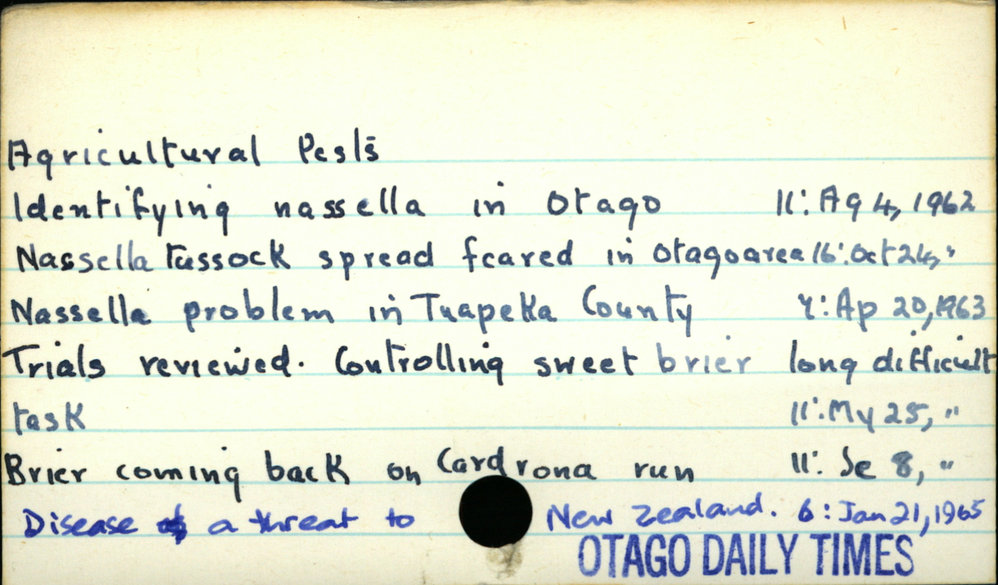 Agricultural Pests
Identifying nassella in Otago 11: Ag 4, 1962
Nassella Tussock spread feared in Otago area 16: Oct 24, "
Nassella problem in Tuapeka County 4: Ap 20, 1963
Trials reviewed. Controlling sweet brier long difficult
task 11: My 25, "
Brier coming back on Cardrona run 11: Se 8, "
Disease a threat to New Zealand. 6: Jan 21, 1965
OTAGO DAILY TIMES